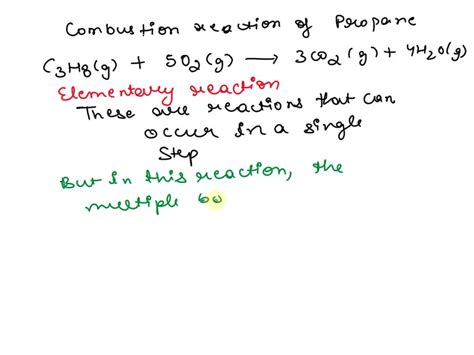 Combustion reaction of Propane
C3H8(g) + 5O2(g) ⟶ 3CO2(g) + 4H2O(g)
Elementary reaction
These are reactions that can
occur in a single
step
But in this reaction, the
multiple bo